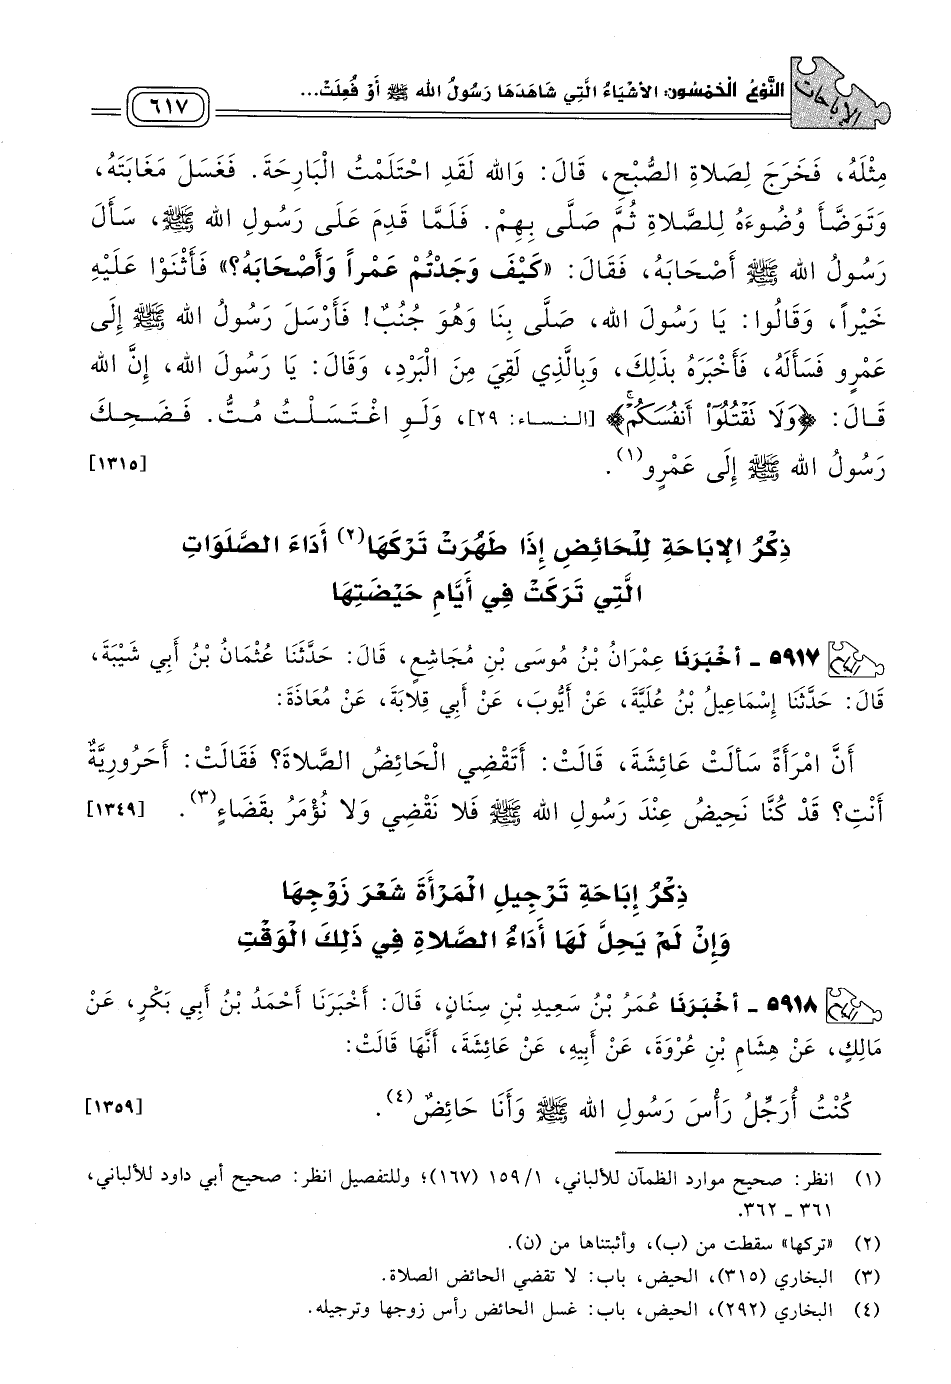 الإباحات
النَّوْعُ الْخَمْسُون: الأَشْيَاءُ الَّتِي شَاهَدَهَا رَسُولُ الله ﷺ أَوْ فُعِلَتْ...
٦١٧
مِثْلَهُ، فَخَرَجَ لِصَلَاةِ الصُّبْحِ، قَالَ: وَالله لَقَدِ احْتَلَمْتُ الْبَارِحَةَ. فَغَسَلَ مَغَابِنَهُ،
وَتَوَضَّأَ وُضُوءَهُ لِلصَّلَاةِ ثُمَّ صَلَّى بِهِمْ. فَلَمَّا قَدِمَ عَلَى رَسُولِ الله ﷺ، سَأَلَ
رَسُولُ الله ﷺ أَصْحَابَهُ، فَقَالَ: «كَيْفَ وَجَدْتُمْ عَمْراً وَأَصْحَابَهُ؟» فَأَثْنَوْا عَلَيْهِ
خَيْراً، وَقَالُوا: يَا رَسُولَ الله، صَلَّى بِنَا وَهُوَ جُنُبٌ! فَأَرْسَلَ رَسُولُ الله ﷺ إِلَى
عَمْرٍو فَسَأَلَهُ، فَأَخْبَرَهُ بِذَلِكَ، وَبِالَّذِي لَقِيَ مِنَ الْبَرْدِ، وَقَالَ: يَا رَسُولَ الله، إِنَّ الله
قَالَ: ﴿وَلَا تَقْتُلُوٓا۟ أَنفُسَكُمْۚ﴾ [النساء: ٢٩]، وَلَوِ اغْتَسَلْتُ مُتُّ. فَضَحِكَ
رَسُولُ الله ﷺ إِلَى عَمْرٍو(١). [١٣١٥]
ذِكْرُ الإِبَاحَةِ لِلْحَائِضِ إِذَا طَهُرَتْ تَرْكَهَا(٢) أَدَاءَ الصَّلَوَاتِ
الَّتِي تَرَكَتْ فِي أَيَّامِ حَيْضَتِهَا
٥٩١٧ ـ أخْبَرَنَا عِمْرَانُ بْنُ مُوسَى بْنِ مُجَاشِعٍ، قَالَ: حَدَّثَنَا عُثْمَانُ بْنُ أَبِي شَيْبَةَ،
قَالَ: حَدَّثَنَا إِسْمَاعِيلُ بْنُ عُلَيَّةَ، عَنْ أَيُّوبَ، عَنْ أَبِي قِلَابَةَ، عَنْ مُعَاذَةَ:
أَنَّ امْرَأَةً سَأَلَتْ عَائِشَةَ، قَالَتْ: أَتَقْضِي الْحَائِضُ الصَّلَاةَ؟ فَقَالَتْ: أَحَرُورِيَّةٌ
أَنْتِ؟ قَدْ كُنَّا نَحِيضُ عِنْدَ رَسُولِ الله ﷺ فَلَا نَقْضِي وَلَا نُؤْمَرُ بِقَضَاءٍ(٣). [١٣٤٩]
ذِكْرُ إِبَاحَةِ تَرْجِيلِ الْمَرْأَةِ شَعْرَ زَوْجِهَا
وَإِنْ لَمْ يَحِلَّ لَهَا أَدَاءُ الصَّلَاةِ فِي ذَلِكَ الْوَقْتِ
٥٩١٨ ـ أخْبَرَنَا عُمَرُ بْنُ سَعِيدِ بْنِ سِنَانٍ، قَالَ: أَخْبَرَنَا أَحْمَدُ بْنُ أَبِي بَكْرٍ، عَنْ
مَالِكٍ، عَنْ هِشَامِ بْنِ عُرْوَةَ، عَنْ أَبِيهِ، عَنْ عَائِشَةَ، أَنَّهَا قَالَتْ:
كُنْتُ أُرَجِّلُ رَأْسَ رَسُولِ الله ﷺ وَأَنَا حَائِضٌ(٤). [١٣٥٩]
(١) انظر: صحيح موارد الظمآن للألباني، ١/ ١٥٩ (١٦٧)؛ وللتفصيل انظر: صحيح أبي داود للألباني،
٣٦١ ـ ٣٦٢.
(٢) «تركها» سقطت من (ب)، وأثبتناها من (ن).
(٣) البخاري (٣١٥)، الحيض، باب: لا تقضي الحائض الصلاة.
(٤) البخاري (٢٩٢)، الحيض، باب: غسل الحائض رأس زوجها وترجيله.